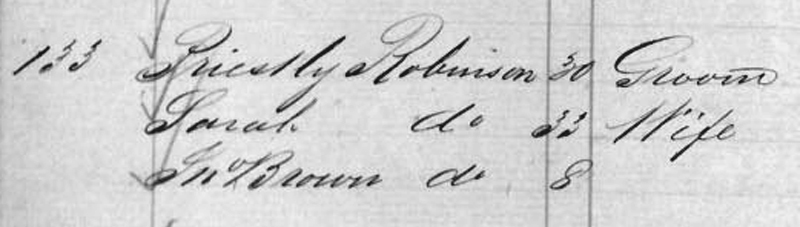 133 Priestly Robinson 30 Groom
Sarah do 33 Wife
Jno Brown do 8